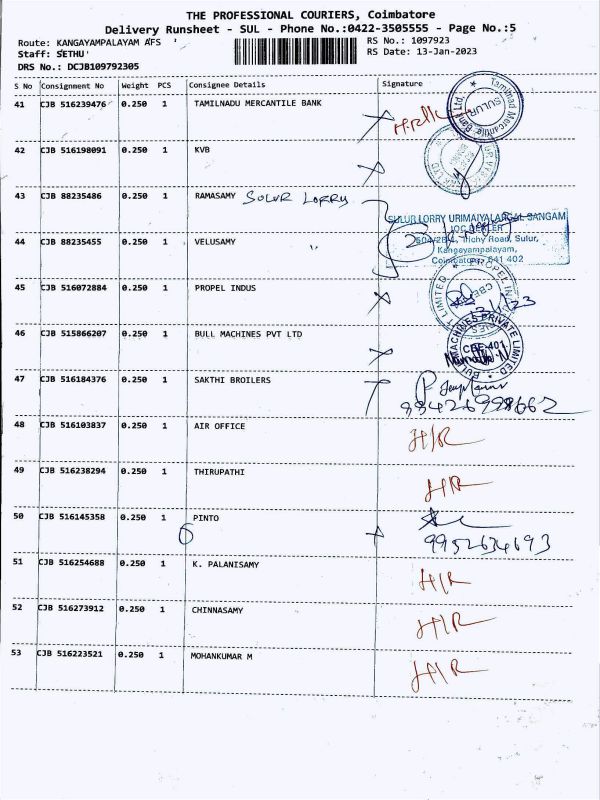 THE PROFESSIONAL COURIERS, Coimbatore
Delivery Runsheet - SUL - Phone No.:0422-3505555 - Page No.:5
Route: KANGAYAMPALAYAM AFS
RS No.: 1097923
Staff: SETHU
RS Date: 13-Jan-2023
DRS No.: DCJB109792305
S No Consignment No Weight PCS Consignee Details Signature
41 CJB 516239476 0.250 1 TAMILNADU MERCANTILE BANK
Tamilnad Mercantile Bank Ltd.
SULUR
42 CJB 516198091 0.250 1 KVB
43 CJB 88235486 0.250 1 RAMASAMY SULUR LORRY
SULUR LORRY URIMAIYALARGAL SANGAM
IOC DEALER
44 CJB 88235455 0.250 1 VELUSAMY "
Trichy Road, Sulur,
Kangayampalayam,
Coimbatore 641 402
45 CJB 516072884 0.250 1 PROPEL INDUS
46 CJB 515866207 0.250 1 BULL MACHINES PVT LTD
BULL MACHINES PRIVATE LIMITED
CBE-401
47 CJB 516184376 0.250 1 SAKTHI BROILERS
48 CJB 516103837 0.250 1 AIR OFFICE H/R
49 CJB 516238294 0.250 1 THIRUPATHI H/R
50 CJB 516145358 0.250 1 PINTO
6
9952634693
51 CJB 516254688 0.250 1 K. PALANISAMY H/R
52 CJB 516273912 0.250 1 CHINNASAMY H/R
53 CJB 516223521 0.250 1 MOHANKUMAR M H/R